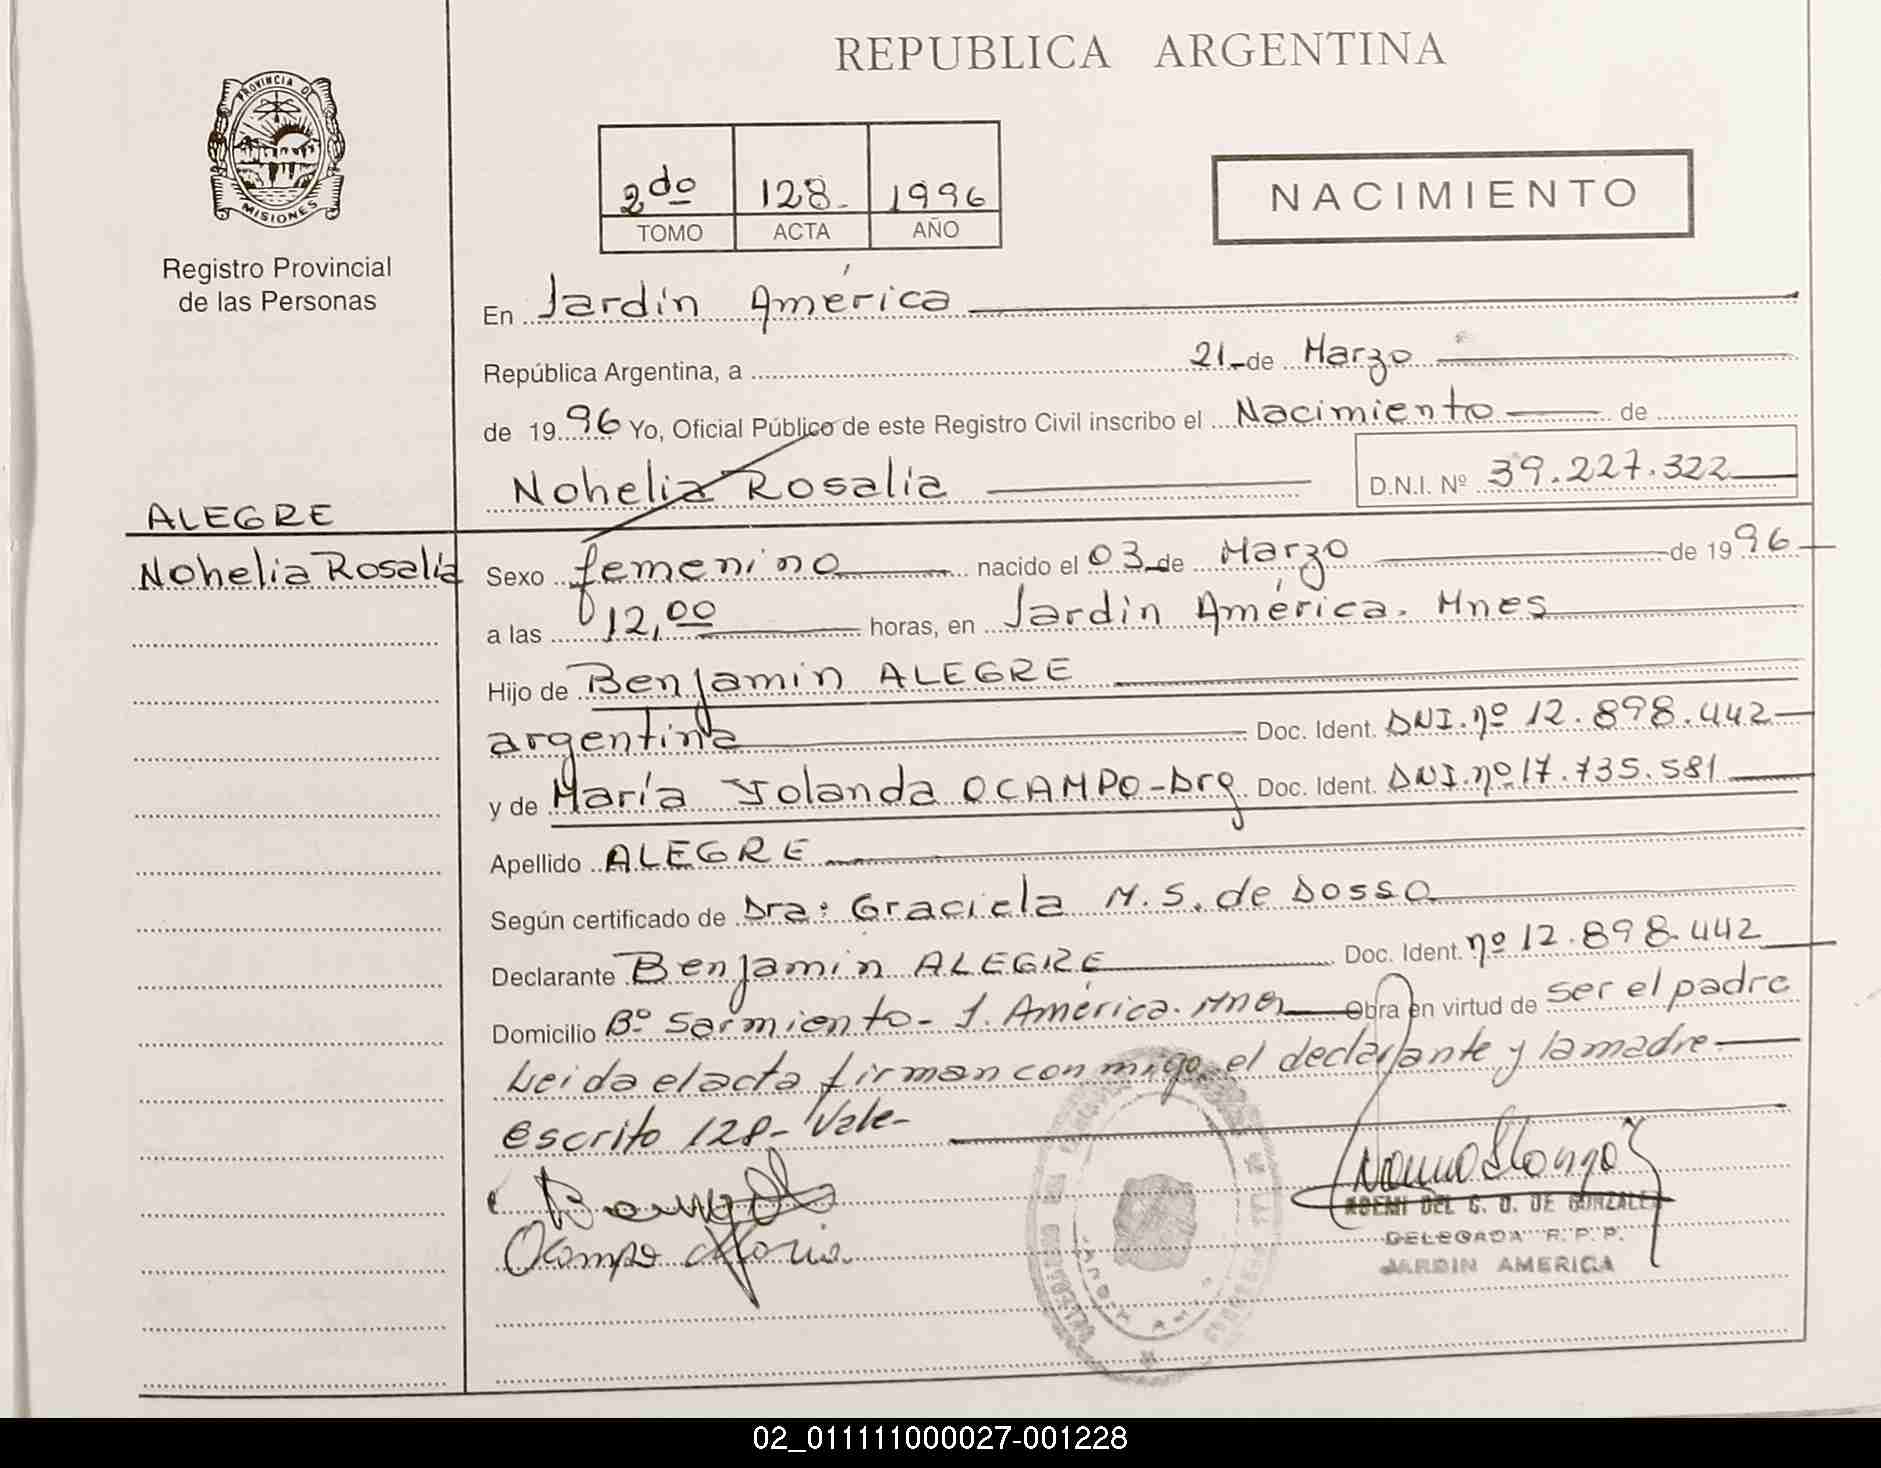 REPUBLICA ARGENTINA
PROVINCIA DE
MISIONES
Registro Provincial
de las Personas
2do 128- 1996
TOMO ACTA AÑO
NACIMIENTO
En Jardín América
República Argentina, a 21- de Marzo
de 1996 Yo, Oficial Público de este Registro Civil inscribo el Nacimiento de
Nohelia Rosalia D.N.I. Nº 39.227.322
ALEGRE
Nohelia Rosalia
Sexo femenino nacido el 03 de Marzo de 1996
a las 12,00 horas, en Jardín América. Mnes
Hijo de Benjamin ALEGRE
argentina Doc. Ident. DNI.nº 12.898.442
y de María Yolanda OCAMPO-Arg Doc. Ident. DNI.nº 17.735.581
Apellido ALEGRE
Según certificado de Dra: Graciela M.S. de Dosso
Declarante Benjamin ALEGRE Doc. Ident. nº 12.898.442
Domicilio Bº Sarmiento- J. América. Mnes Obra en virtud de ser el padre
Leida el acta firman conmigo el declarante y la madre
escrito 128- Vale-
Ocampo Maria
DEL C. O. DE GONZALEZ
DELEGADA R.P.P.
JARDIN AMERICA
02_011111000027-001228